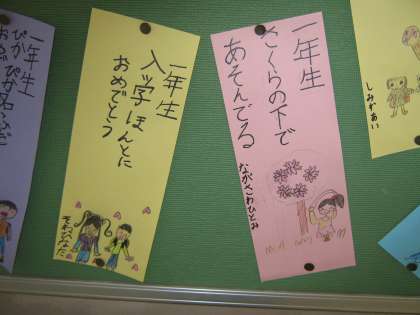 一年生
さくらの下で
あそんでる
ながさわひとみ
一年生
入学ほんとに
おめでとう
それひなた
一年生
ぴかぴか
しみずあい